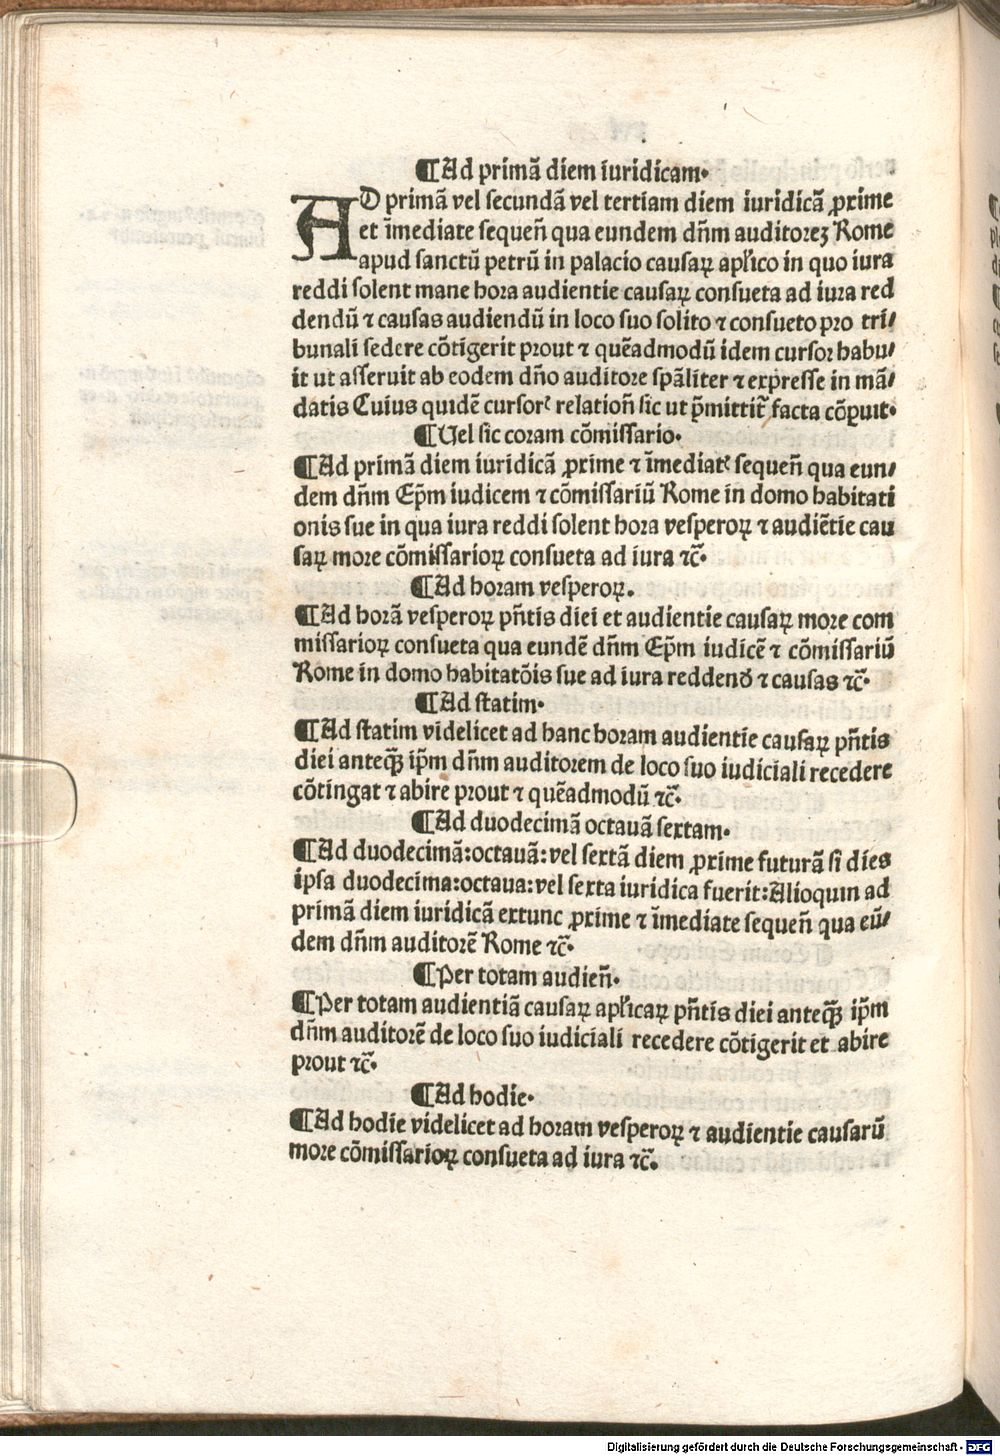 ¶Ad primā diem iuridicam·
AD primā vel secundā vel tertiam diem iuridicā ꝓxime
et īmediate sequeñ qua eundem dñm auditoreꝫ Rome
apud sanctū petrū in palacio causaꝝ apl'ico in quo iura
reddi solent mane hora audientie causaꝝ consueta ad iura red
dendū ⁊ causas audiendū in loco suo solito ⁊ consueto pro tri/
bunali sedere cōtigerit prout ⁊ quēadmodū idem cursor habu/
it ut asseruit ab eodem dño auditore spāliter ⁊ expresse in mā/
datis Cuius quidē cursor' relatioñ sic ut p̄mittit̄ facta cōpuit·
¶Uel sic coram cōmissario·
¶Ad primā diem iuridicā ꝓxime ⁊ īmediat' sequeñ qua eun/
dem dñm Ep̄m iudicem ⁊ cōmissariū Rome in domo habitati
onis sue in qua iura reddi solent hora vesperoꝝ ⁊ audiētie cau
saꝝ more cōmissarioꝝ consueta ad iura ⁊c̄·
¶Ad horam vesperoꝝ.
¶Ad horā vesperoꝝ pñtis diei et audientie causaꝝ more com
missarioꝝ consueta qua eundē dñm Ep̄m iudicē ⁊ cōmissariū
Rome in domo habitatōis sue ad iura reddenđ ⁊ causas ⁊c̄·
¶Ad statim·
¶Ad statim videlicet ad hanc horam audientie causaꝝ pñtis
diei anteq̄ꝫ ip̄m dñm auditorem de loco suo iudiciali recedere
cōtingat ⁊ abire prout ⁊ quēadmodū ⁊c̄·
¶Ad duodecimā octauā sextam·
¶Ad duodecimā:octauā:vel sextā diem ꝓxime futurā si dies
ipsa duodecima:octaua:vel sexta iuridica fuerit:Alioquin ad
primā diem iuridicā extunc ꝓxime ⁊ īmediate sequeñ qua eū/
dem dñm auditorē Rome ⁊c̄·
¶Per totam audieñ·
¶Per totam audientiā causaꝝ apl'icaꝝ pñtis diei anteq̄ꝫ ip̄m
dñm auditorē de loco suo iudiciali recedere cōtigerit et abire
prout ⁊c̄·
¶Ad hodie·
¶Ad hodie videlicet ad horam vesperoꝝ ⁊ audientie causarū
more cōmissarioꝝ consueta ad iura ⁊c̄.
Digitalisierung gefördert durch die Deutsche Forschungsgemeinschaft · DFG